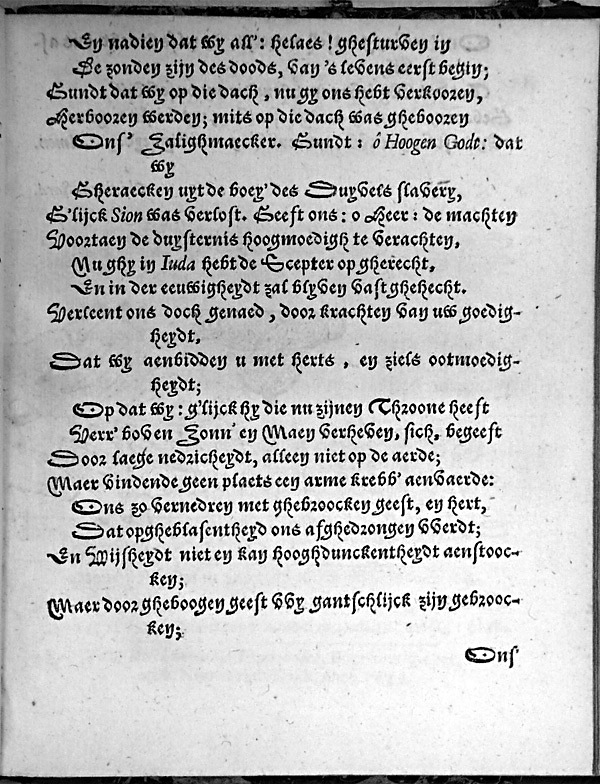 En nadien dat wy all': helaes! ghesturven in
De zonden zijn des doods, van 's levens eerst begin;
Gundt dat wy op die dach, nu gy ons hebt verkooren,
Herbooren werden; mits op die dach was ghebooren
Ons' Zalighmaecker. Gundt: ô Hoogen Godt: dat
wy
Gheraecken uyt de boey' des Duyvels slavery,
G'lijck Sion was verlost. Geeft ons: o Heer: de machten
Voortaen de duysternis hoogmoedigh te verachten,
Nu ghy in Iuda hebt de Scepter op gherecht,
En in der eeuwigheydt zal blyven vast ghehecht.
Verleent ons doch genaed, door krachten van uw goedig-
heydt,
Dat wy aenbidden u met herts, en ziels ootmoedig-
heydt;
Op dat wy: g'lijck hy die nu zijnen Throone heeft
Verr' boven Zonn' en Maen verheven, sich, begeeft
Door laege nedricheydt, alleen niet op de aerde;
Maer vindende geen plaets een arme krebb' aenvaerde:
Ons zo vernedren met ghebroocken geest, en hert,
Dat opgheblasentheyd ons afghedrongen vverdt;
En Wijsheydt niet en kan hooghdunckentheydt aenstooc-
ken;
Maer door gheboogen geest vvy gantschlijck zijn gebrooc-
ken;
Ons'